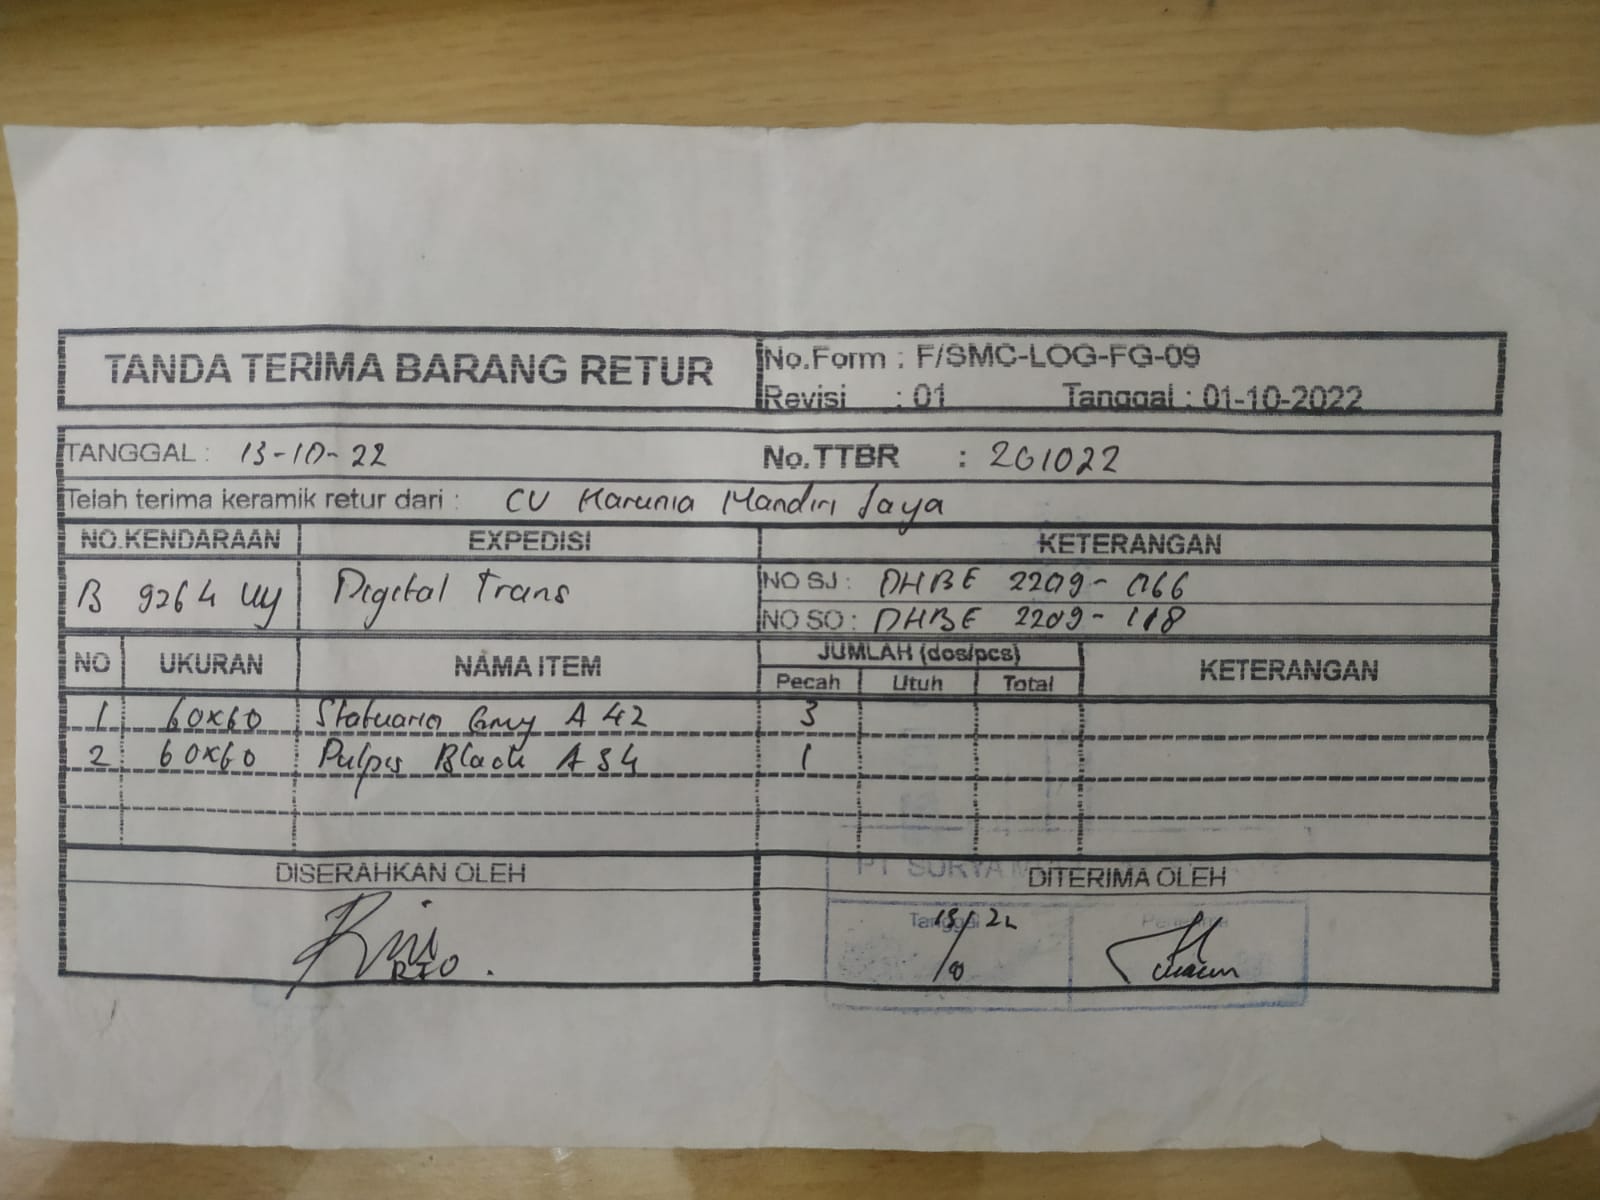 TANDA TERIMA BARANG RETUR
No.Form : F/SMC-LOG-FG-09
Revisi : 01 Tanggal : 01-10-2022
TANGGAL : 13-10-22 No.TTBR : 201022
Telah terima keramik retur dari : CV Karunia Mandiri Jaya
NO.KENDARAAN EXPEDISI KETERANGAN
B 9264 UY Digital Trans
NO SJ : DHBE 2209-066
NO SO : DHBE 2209-118
NO UKURAN NAMA ITEM JUMLAH (dos/pcs) KETERANGAN
Pecah Utuh Total
1 60x60 Statuario Grey A 42 3
2 60x60 Pulpis Black A 34 1
DISERAHKAN OLEH DITERIMA OLEH
PT SURYA
Tanggal 13/10 22 Penerima
RIO